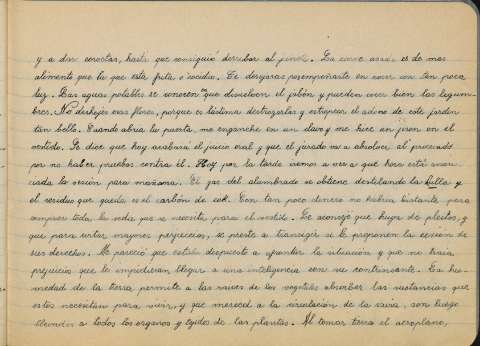 y a dar corvetas, hasta que consiguió derribar al jinete. La carne asada es de mas
alimento que la que esta frita o cocida. Te desojaras por empeñarte en coser con tan poca
luz. Las aguas potables se conocen en que disuelven el jabón y pueden cocer bien las legum-
bres. No deshojes esas flores, porque es lástima destrozarlas y estropear el adorno de este jardin
tan bello. Cuando abria la puerta, me enganche en un clavo y me hice un jiron en el
vestido. Se dice que hoy acabará el juicio oral y que el jurado va a absolver al procesado
por no haber pruebas contra él. Hoy por la tarde iremos a ver a que hora está anun-
ciada la sesión para mañana. El gas del alumbrado se obtiene destilando la hulla y
el residuo que queda es el carbón de cok. Con tan poco dinero no habria bastante para
comprar toda la seda que se necesita para el vestido. Le aconsejó que huya de pleitos, y
que para evitar mayores perjuicios, se preste a transigir si le proponen la cesión de
sus derechos. Me pareció que estaba dispuesto a afrontar la situación y que no habia
prejuicios que le impidieran llegar a una inteligencia con su contrincante. La hu-
medad de la tierra permite a las raices de los vegetales absorber las sustancias que
estos necesitan para vivir, y que merced a la circulación de la savia, son luego
a todos los órganos y tejidos de las plantas. Al tomar tierra el aeroplano,